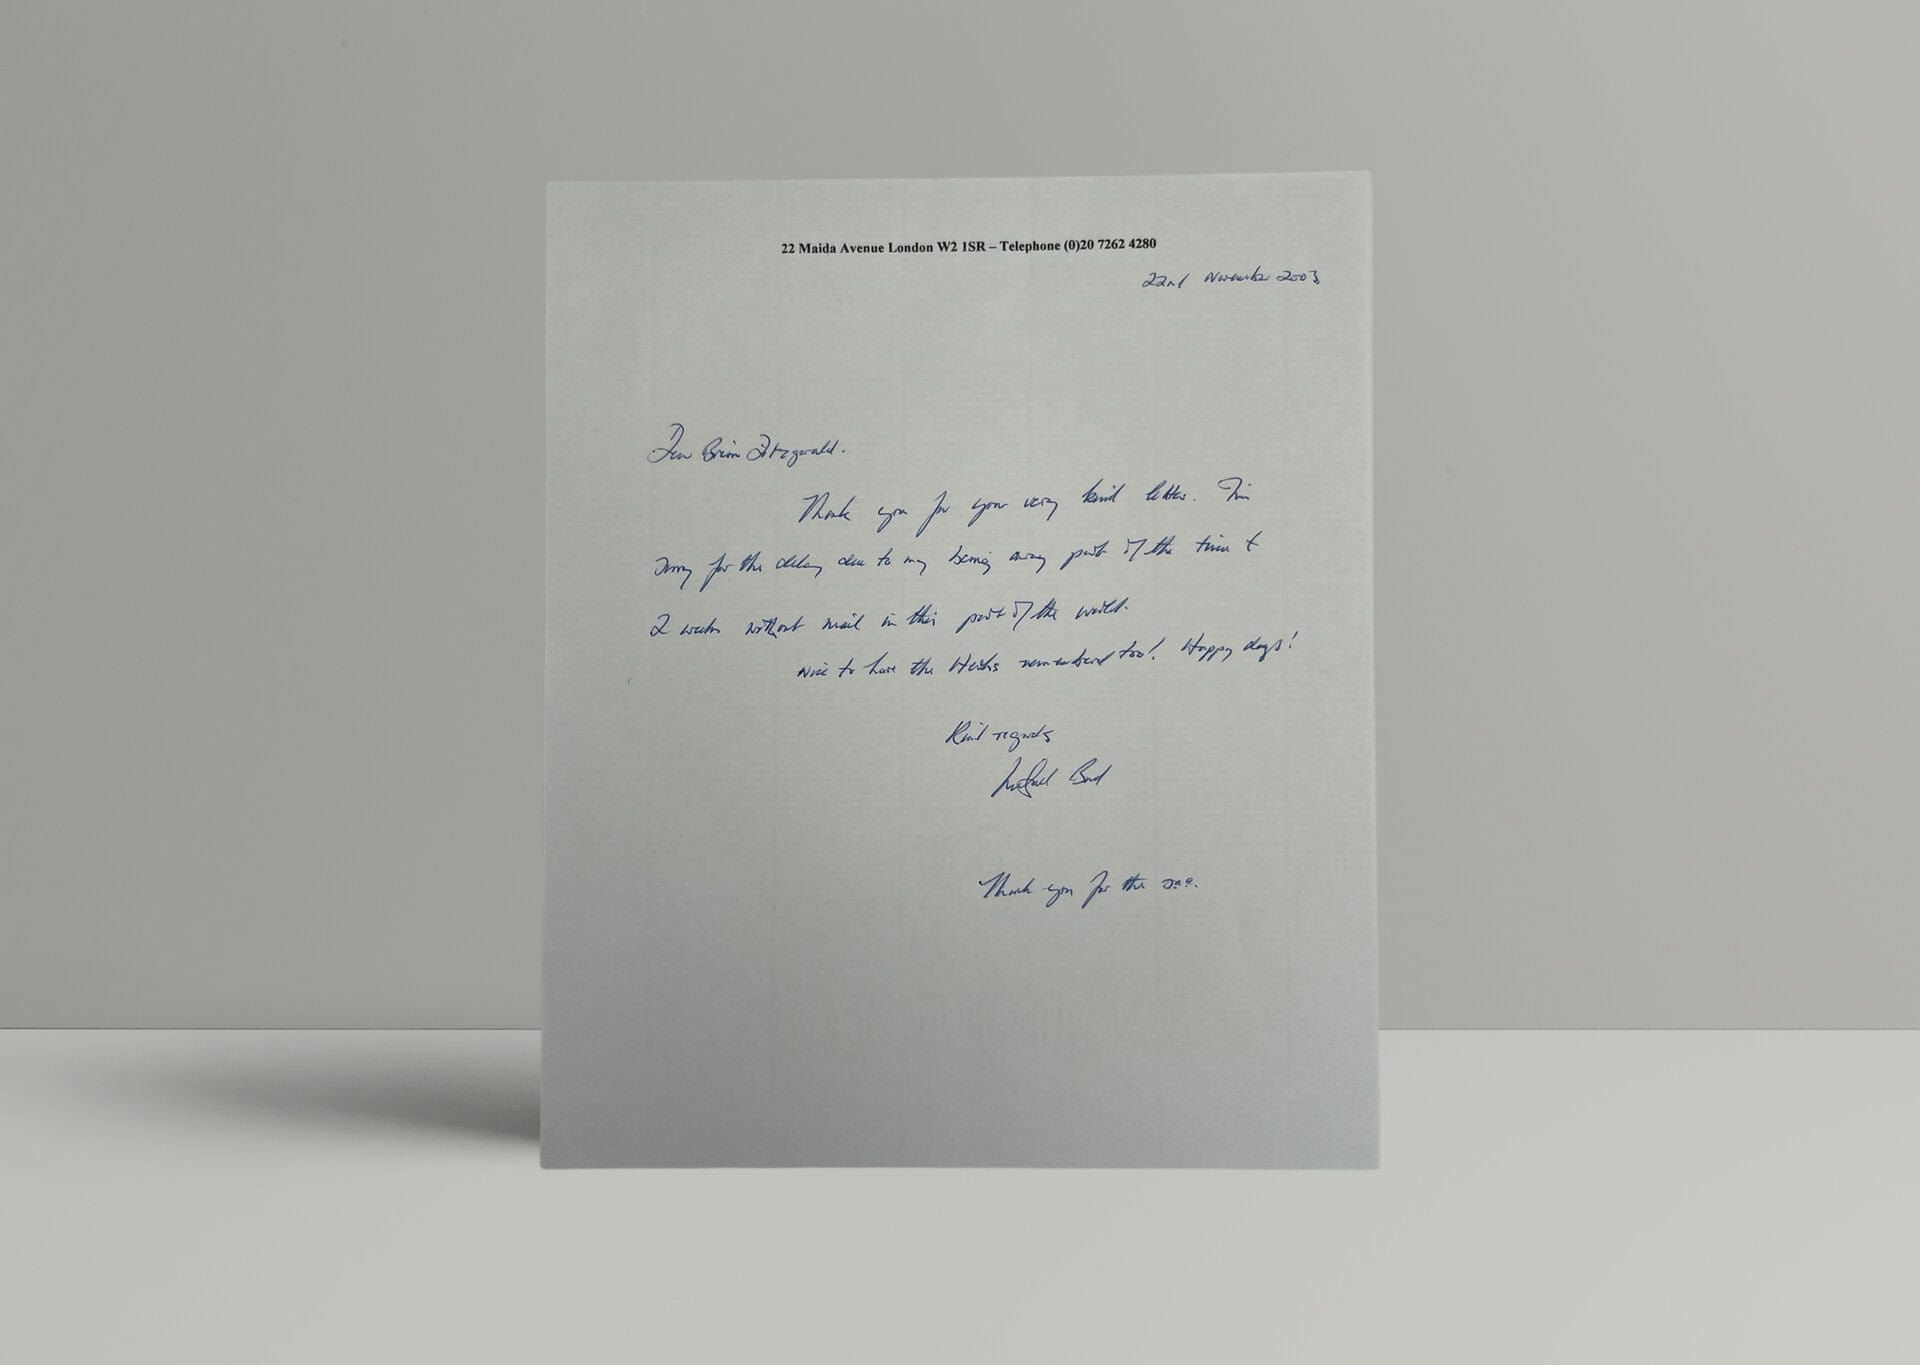 22 Maida Avenue London W2 1SR – Telephone (0)20 7262 4280
22nd November 2003
Dear Brian Fitzgerald.
Thank you for your very kind letter. I'm
sorry for the delay due to my being away part of the time &
2 weeks without mail in this part of the world.
Nice to have the Herbs remembered too! Happy days!
Kind regards
Michael Bond
Thank you for the sae.